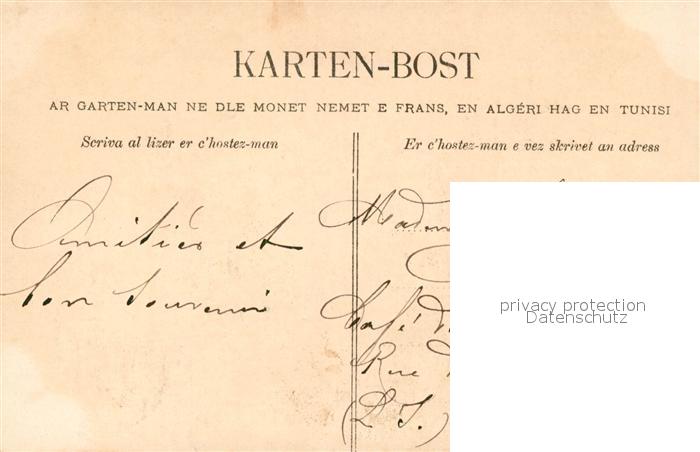 KARTEN-BOST
AR GARTEN-MAN NE DLE MONET NEMET E FRANS, EN ALGÉRI HAG EN TUNISI
Scriva al lizer er c'hostez-man
Er c'hostez-man e vez skrivet an adress
Amitiés et
bon souvenir
Madem
Café
Rue
privacy protection
Datenschutz